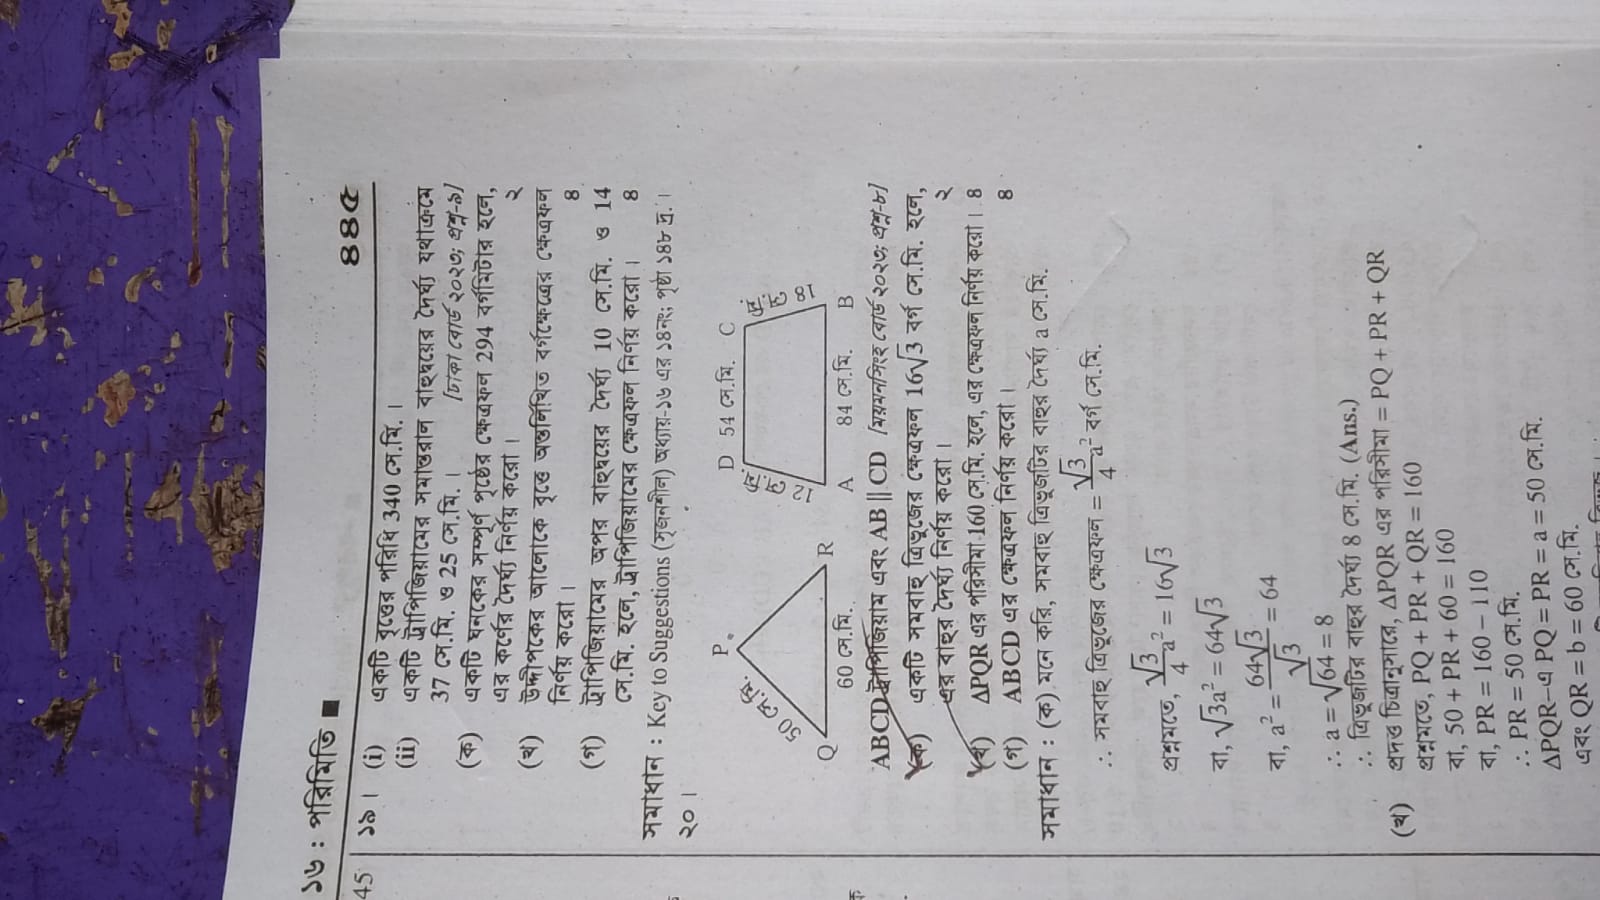 ১৬ : পরিমিতি ■ ৪৪৫
45
১৯। (i) একটি বৃত্তের পরিধি 340 সে.মি.।
(ii) একটি ট্রাপিজিয়ামের সমান্তরাল বাহুদ্বয়ের দৈর্ঘ্য যথাক্রমে
37 সে.মি. ও 25 সে.মি.। [ঢাকা বোর্ড ২০২৩; প্রশ্ন-৯]
(ক) একটি ঘনকের সম্পূর্ণ পৃষ্ঠের ক্ষেত্রফল 294 বর্গমিটার হলে,
এর কর্ণের দৈর্ঘ্য নির্ণয় করো। ২
(খ) উদ্দীপকের আলোকে বৃত্তে অন্তর্লিখিত বর্গক্ষেত্রের ক্ষেত্রফল
নির্ণয় করো। ৪
(গ) ট্রাপিজিয়ামের অপর বাহুদ্বয়ের দৈর্ঘ্য 10 সে.মি. ও 14
সে.মি. হলে, ট্রাপিজিয়ামের ক্ষেত্রফল নির্ণয় করো। ৪
সমাধান : Key to Suggestions (সৃজনশীল) অধ্যায়-১৬ এর ১৪নং; পৃষ্ঠা ১৪৮ দ্র.।
২০।
P
50 সে.মি.
Q
60 সে.মি.
R
D 54 সে.মি. C
12 সে.মি.
18 সে.মি.
A 84 সে.মি. B
ABCD ট্রাপিজিয়াম এবং AB || CD [ময়মনসিংহ বোর্ড ২০২৩; প্রশ্ন-৮]
(ক) একটি সমবাহু ত্রিভুজের ক্ষেত্রফল 16√3 বর্গ সে.মি. হলে,
এর বাহুর দৈর্ঘ্য নির্ণয় করো। ২
(খ) ΔPQR এর পরিসীমা 160 সে.মি. হলে, এর ক্ষেত্রফল নির্ণয় করো। ৪
(গ) ABCD এর ক্ষেত্রফল নির্ণয় করো। ৪
সমাধান : (ক) মনে করি, সমবাহু ত্রিভুজটির বাহুর দৈর্ঘ্য a সে.মি.
∴ সমবাহু ত্রিভুজের ক্ষেত্রফল = √3/4 a² বর্গ সে.মি.
প্রশ্নমতে, √3/4 a² = 16√3
বা, √3a² = 64√3
বা, a² = 64√3/√3 = 64
∴ a = √64 = 8
∴ ত্রিভুজটির বাহুর দৈর্ঘ্য 8 সে.মি. (Ans.)
(খ) প্রদত্ত চিত্রানুসারে, ΔPQR এর পরিসীমা = PQ + PR + QR
প্রশ্নমতে, PQ + PR + QR = 160
বা, 50 + PR + 60 = 160
বা, PR = 160 − 110
∴ PR = 50 সে.মি.
ΔPQR-এ PQ = PR = a = 50 সে.মি.
এবং QR = b = 60 সে.মি.